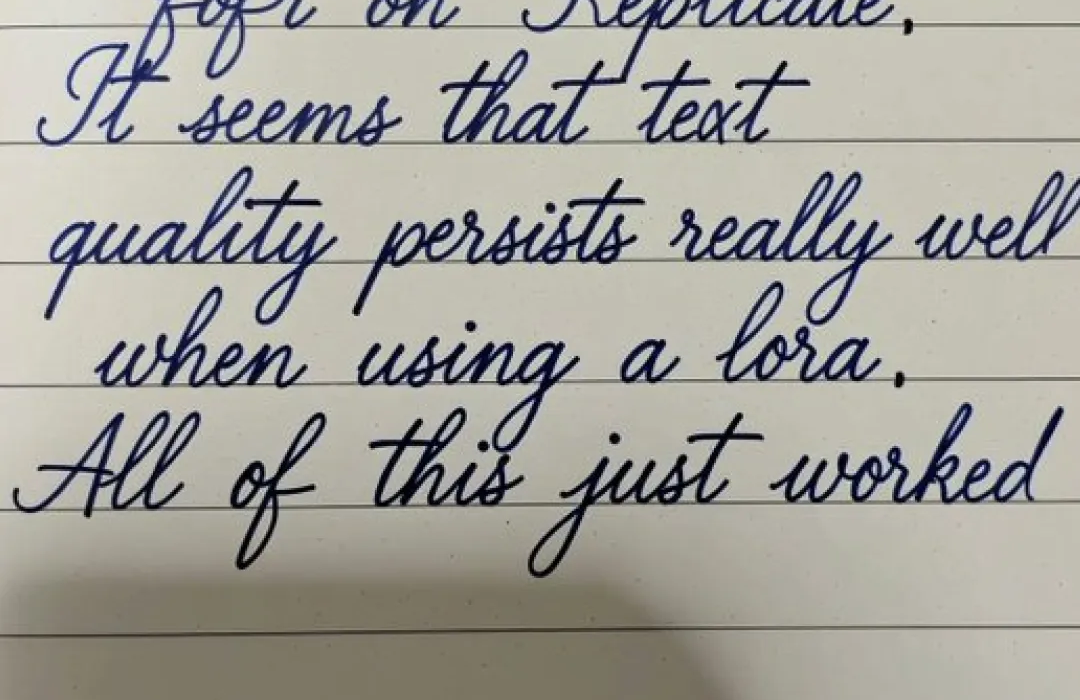 fofr on Replicate.
It seems that text
quality persists really well
when using a lora.
All of this just worked